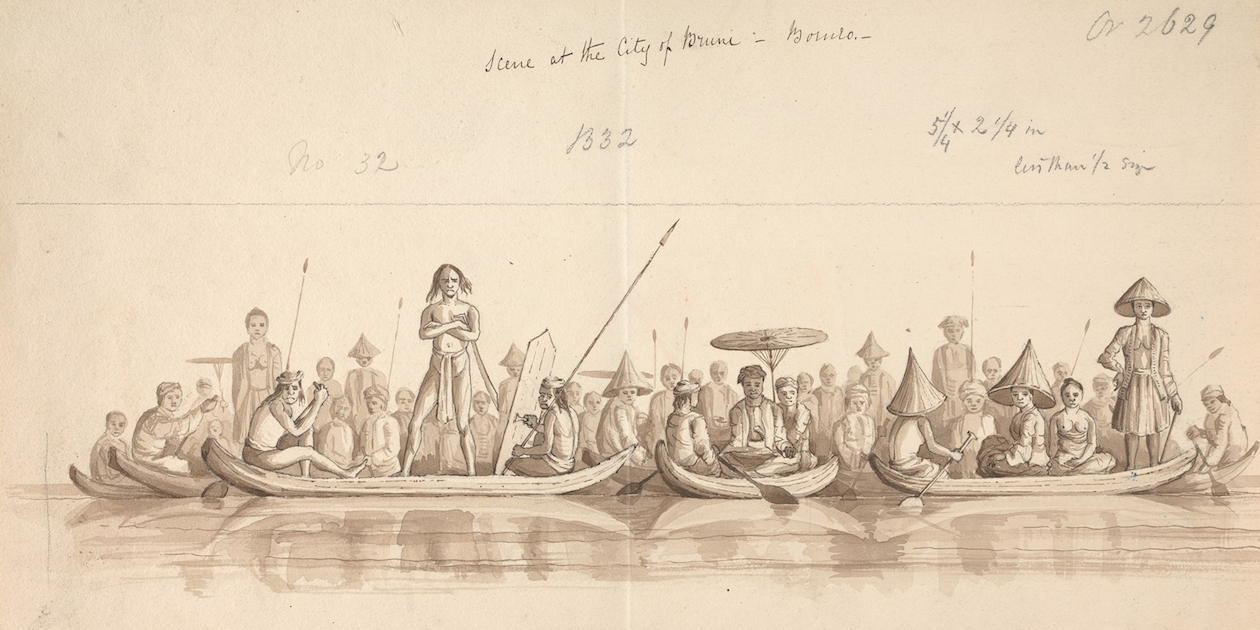 Or 2629
Scene at the City of Bruni :- Borneo.-
5 1/4 x 2 1/4 in
No 32
1332
less than 1/2 size